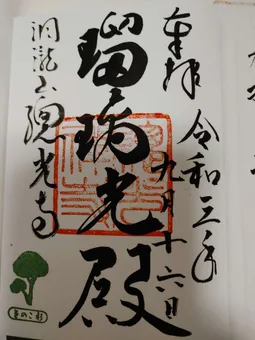 奉拝
令和三年
九月十六日
瑠璃光殿
洞瀧山總光寺
きのこ杉